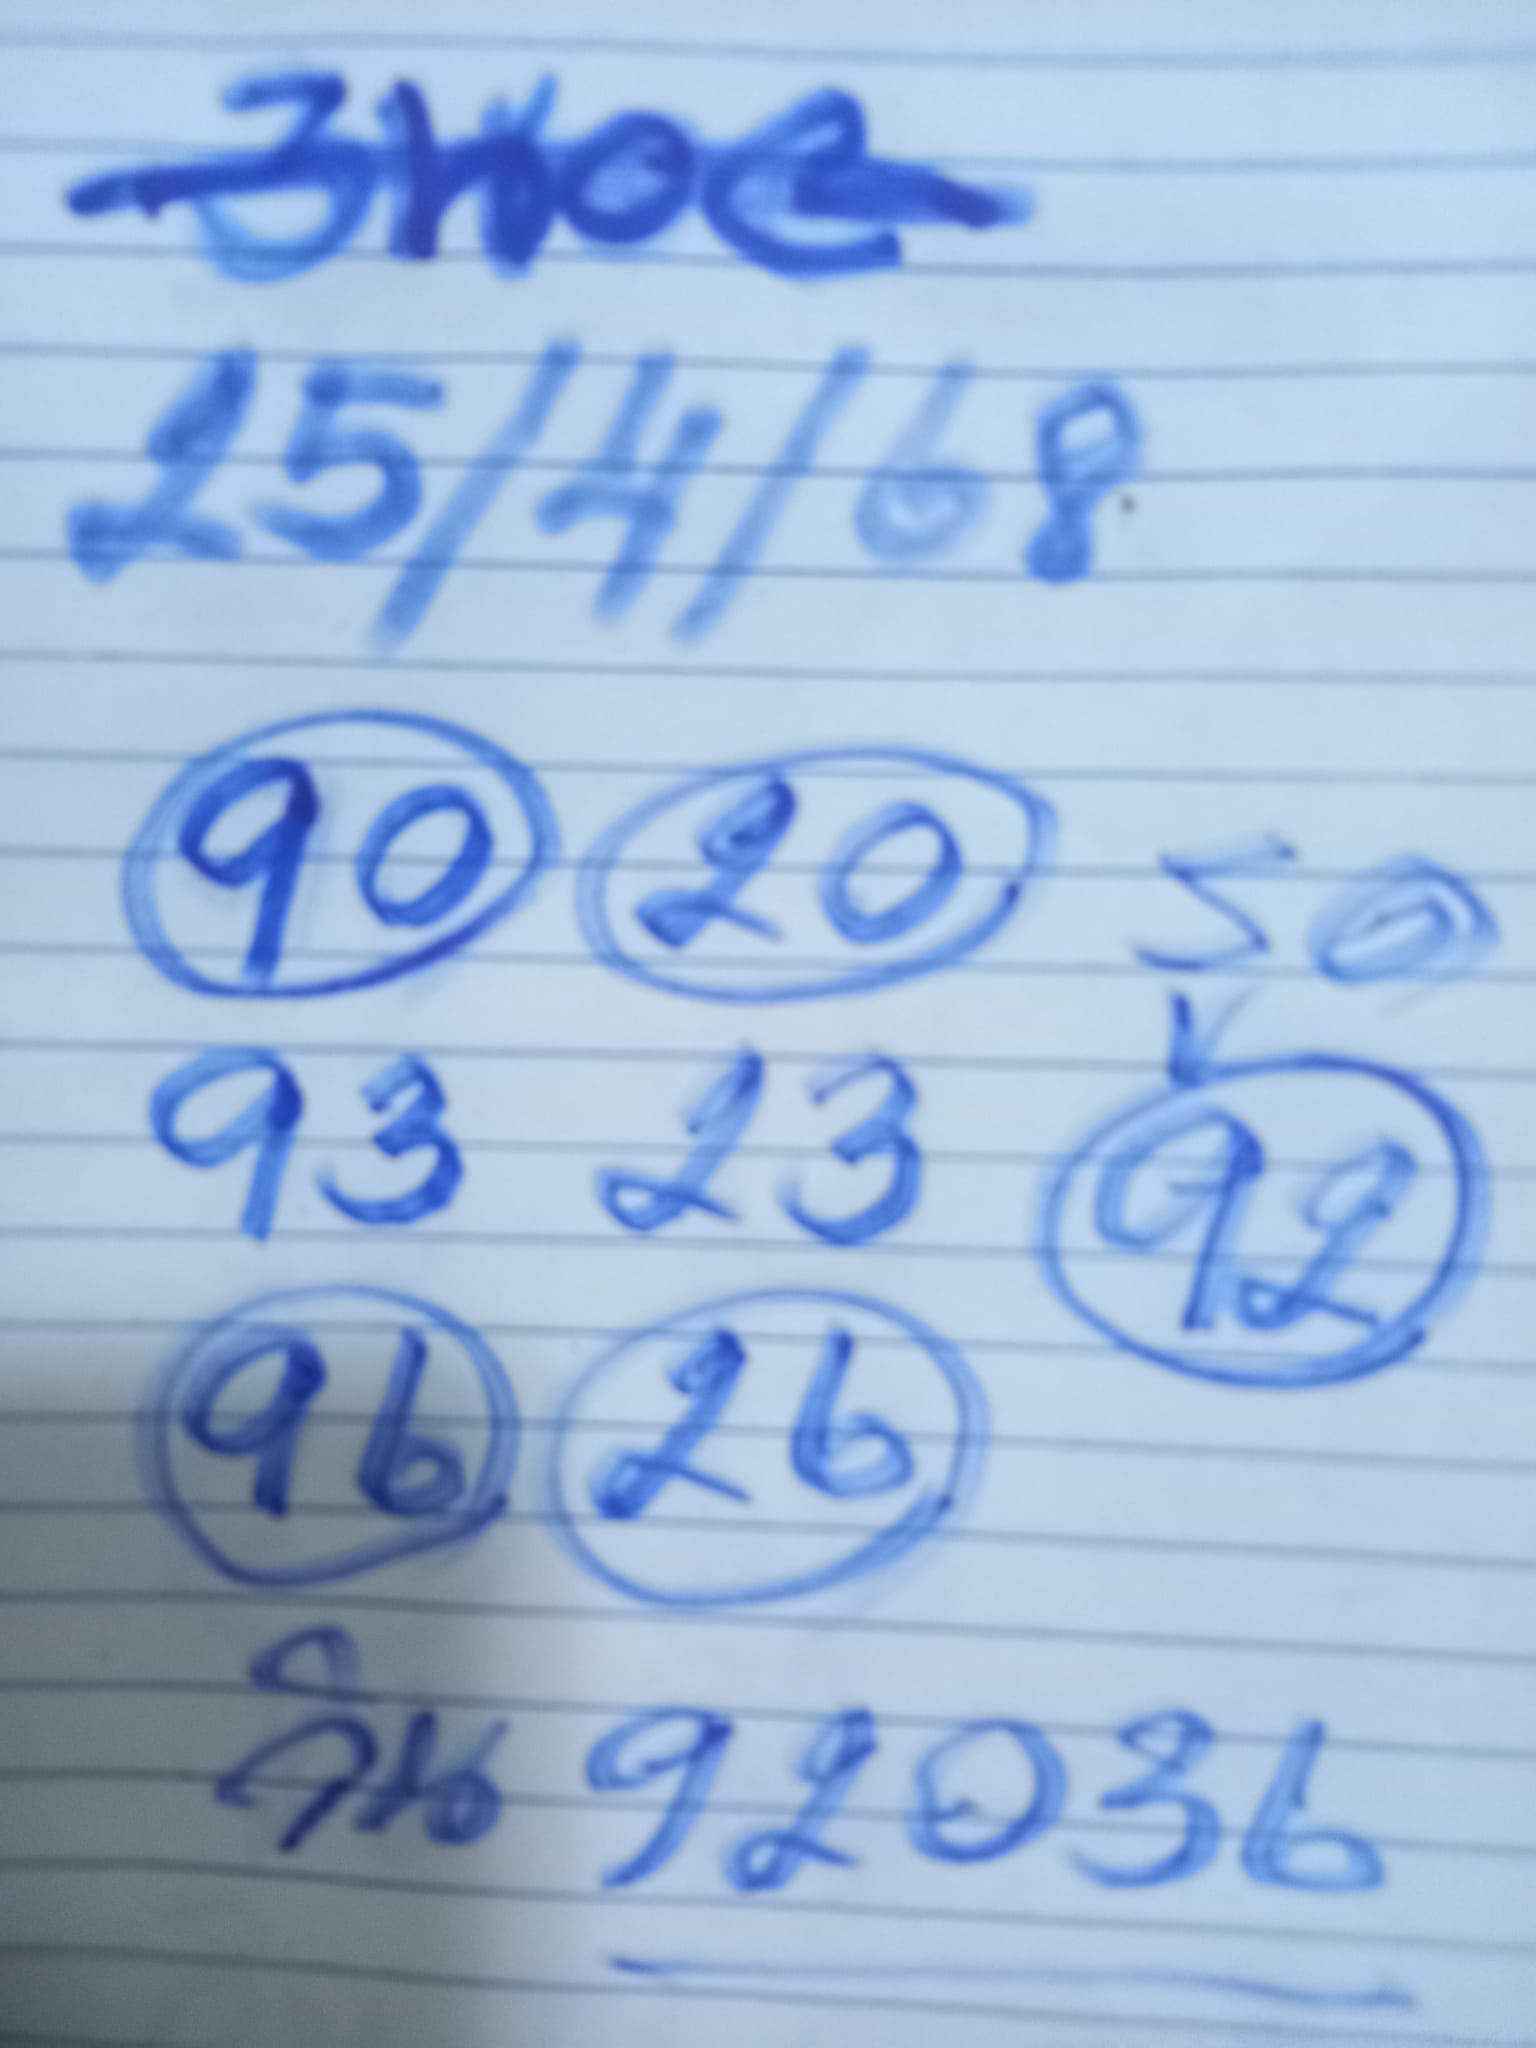 25/4/68
90 20 50
93 23 92
96 26
วิน 92036